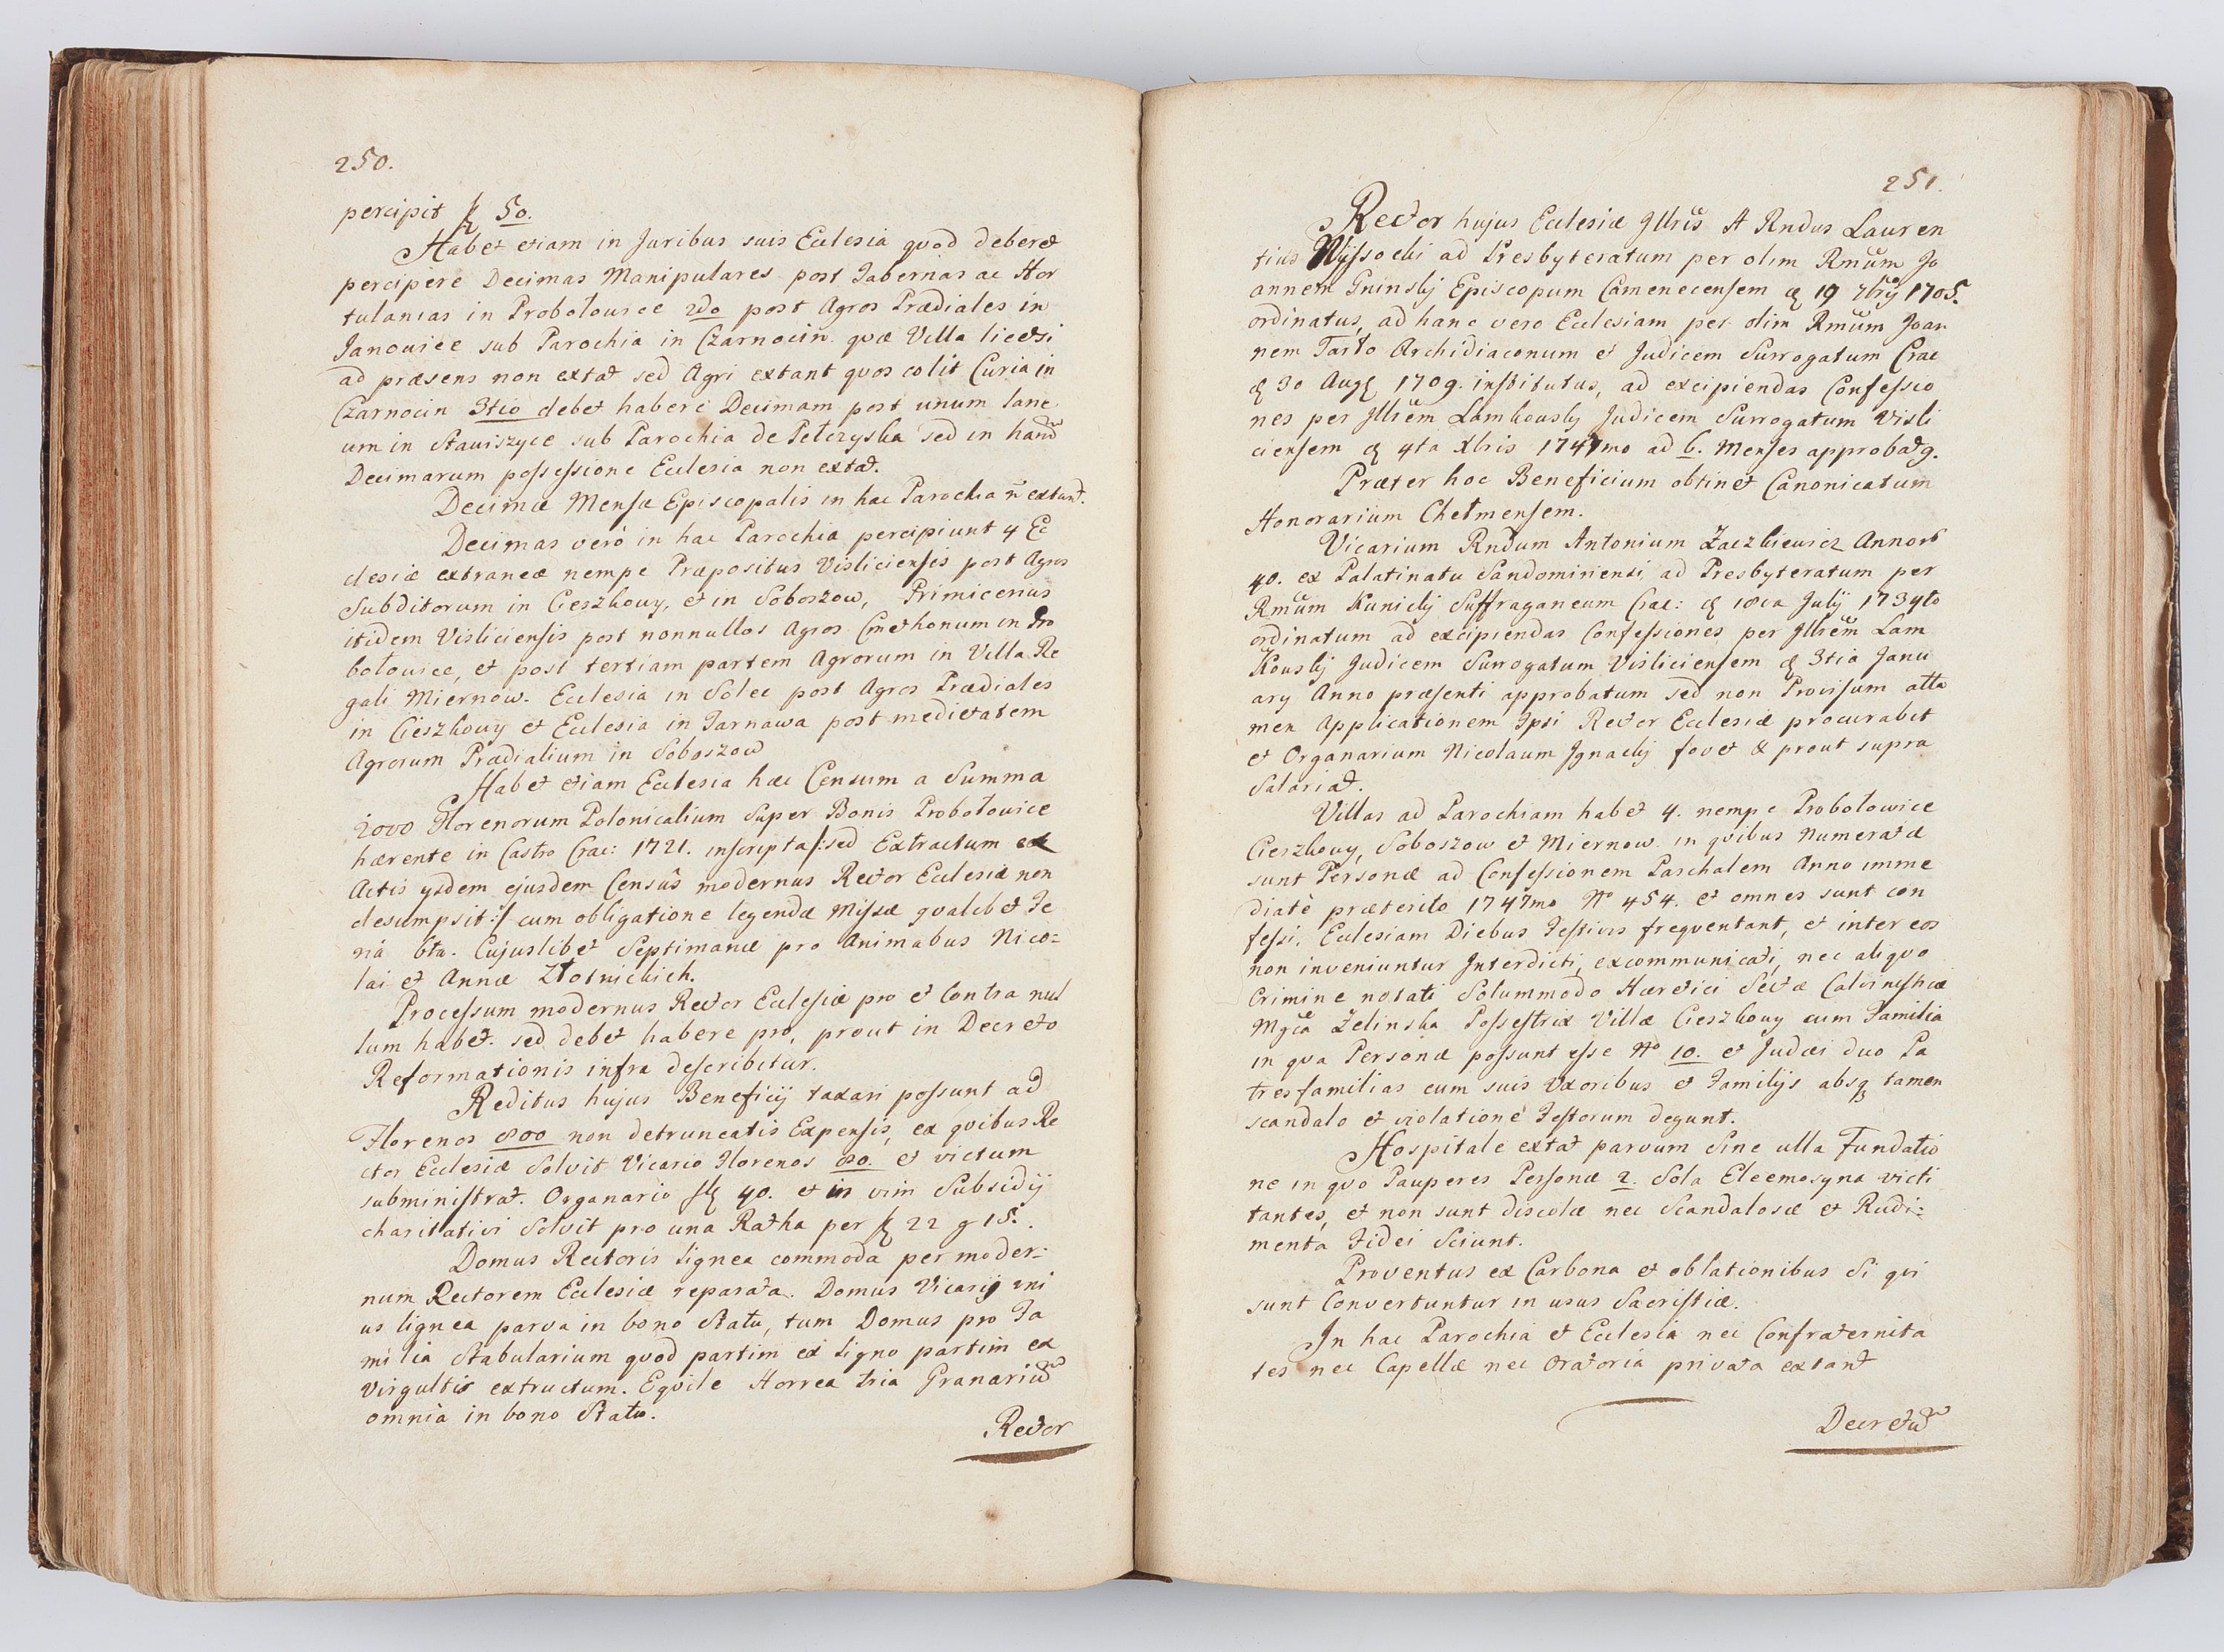 250.
percipit fl 50.
Habet etiam in Juribus suis Ecclesia quod deberet
percipere Decimas Manipulares post Tabernas ac Hor
tulanias in Probołowice 2do post Agros Prædiales in
Janowice sub Parochia in Czarnocin quæ Villa licetsi
ad præsens non extat sed Agri extant quos colit Curia in
Czarnocin 3tio debet habere Decimam post unum lane
um in Stawiszyce sub Parochia de Pełczyska sed in hanc
Decimarum possessione Ecclesia non extat.
Decimæ Mensæ Episcopalis in hac Parochia ñ extant.
Decimas verò in hac Parochia percipiunt 4 Ec
clesiæ extraneæ nempe Præpositus Visliciensis post Agros
Subditorum in Cieszkowy, et in Soboszow, Primicerius
itidem Visliciensis post nonnullos Agros Cmethonum in Pro
bołowice, et post tertiam partem Agrorum in Villa Re
gali Miernow. Ecclesia in Solec post Agros Prædiales
in Cieszkowy et Ecclesia in Tarnawa post medietatem
Agrorum Prædialium in Soboszow
Habet etiam Ecclesia hæc Censum a Summa
2000 Florenorum Polonicalium Super Bonis Probołowice
hærente in Castro Crac: 1721. inscripta /:sed Extractum ex
Actis ysdem ejusdem Censûs modernus Rector Ecclesiæ non
desumpsit:/ cum obligatione legendæ Missæ qualibet Fe
riâ 6ta. Cujuslibet Septimanæ pro Animabus Nico=
lai et Annæ Złotnickich.
Processum modernus Rector Ecclesiæ pro et Contra nul
lum habet. sed debet habere pro, prout in Decreto
Reformationis infra describetur.
Reditus hujus Beneficij taxari possunt ad
Florenos 800 non detruncatis Expensis, ex quibus Re
ctor Ecclesiæ Solvit Vicario Florenos 80. et victum
subministrat. Organario fl 40. et in vim Subsidij
charitativi Solvit pro una Ratha per fl 22 g 15.
Domus Rectoris lignea commoda per moder=
num Rectorem Ecclesiæ reparata. Domus Vicarij uni
us lignea parva in bono Statu, tum Domus pro Fa
milia Stabularium quod partim ex ligno partim ex
virgultis extructum. Eqvile Horrea tria Granariũ
omnia in bono Statu.
Rector
251.
Rector hujus Ecclesiæ Jllris A Rndus Lauren
tius Wyssocki ad Presbyteratum per olim Rmum Jo
annem Gninskj Episcopum Camenecensem d 19 7brij 1705.
ordinatus, ad hanc vero Ecclesiam per olim Rmum Joan
nem Tarło Archidiaconum et Judicem Surrogatum Crac
d 30 Augi 1709. institutus, ad excipiendas Confessio
nes per Jllrem Lamkouskj Judicem Surrogatum Visli
ciensem d 4ta Xbris 1747mo ad 6. Menses approbatg.
Præter hoc Beneficium obtinet Canonicatum
Honorarium Chełmensem.
Vicarium Rndum Antonium Zaczkiewicz Annor
40. ex Palatinatu Sandomiriensi, ad Presbyteratum per
Rmum Kunickj Suffraganeum Crac: d 18va Julij 1734to
ordinatum ad excipiendas Confessiones per Jllrem Lam
kouskj Judicem Surrogatum Visliciensem d 3tia Janu
ary Anno præsenti approbatum sed non Provisum atta
men Applicationem Ipsi Rector Ecclesiæ procurabit
et Organarium Nicolaum Jgnackj fovet & prout supra
Salariat.
Villas ad Parochiam habet 4. nempe Probołowice
Cieszkowy, Soboszow et Miernow. in quibus Numeratæ
sunt Personæ ad Confessionem Paschalem Anno imme
diatè præterito 1747mo No 454. et omnes sunt con
fessi. Ecclesiam Diebus Festivis freqventant, et inter eos
non inveniuntur Interdicti, excommunicati, nec aliquo
Crimine notati Solummodo Hæretici Sectæ Calvinisticæ
Mgca Zelinska Possestrix Villæ Cieszkowy cum Familia
in qua Personæ possunt esse No 10. et Judæi duo Pa
tresfamilias cum suis Uxoribus et Familijs absq tamen
scandalo et violatione Festorum degunt.
Hospitale extat parvum Sine ulla Fundatio
ne in quo Pauperes Personæ 2. Sola Eleemosyna victi
tantes, et non sunt discolæ nec Scandalosæ et Rudi=
menta Fidei Sciunt.
Proventus ex Carbona et oblationibus Si qui
sunt Convertuntur in usus Sacristiæ.
In hac Parochia et Ecclesia nec Confraternita
tes nec Capellæ nec Oratoria privata extant
Decretũ